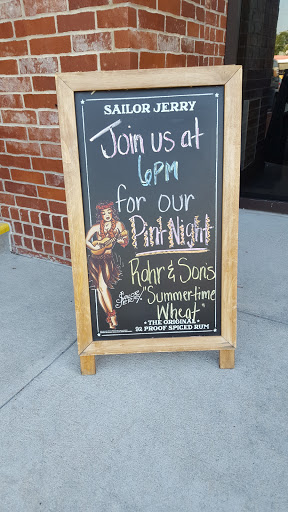 SAILOR JERRY
Join us at
6PM
for our
Pint Night
Rahr & Son's
"Summertime
Wheat"
Sailor
Jerry
• THE ORIGINAL •
92 PROOF SPICED RUM